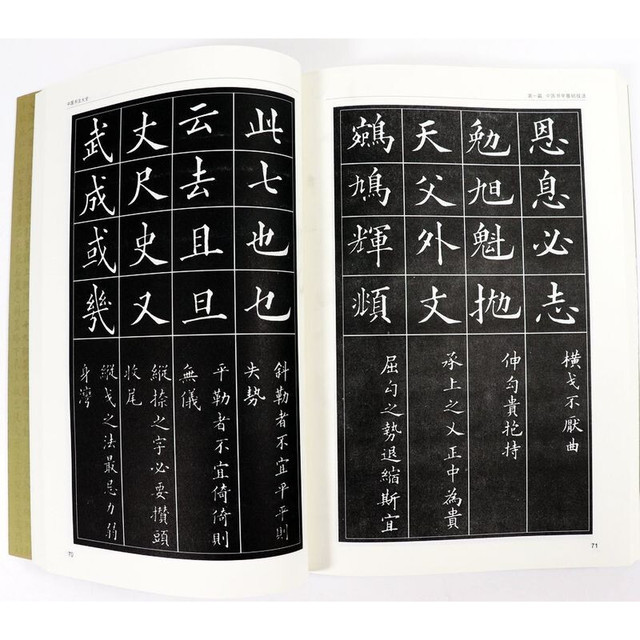 此七也乜
斜勒者不宜平平則
失勢
云去且旦
平勒者不宜倚倚則
無儀
丈尺史又
縱捺之字必要攢頭
收尾
武成或幾
縱戈之法最忌力弱
身灣
70
第一篇
恩息必志
橫戈不厭曲
勉旭魁拋
伸勾貴抱持
天父外文
承上之乂正中為貴
鳩輝
屈勾之勢退縮斯宜
71